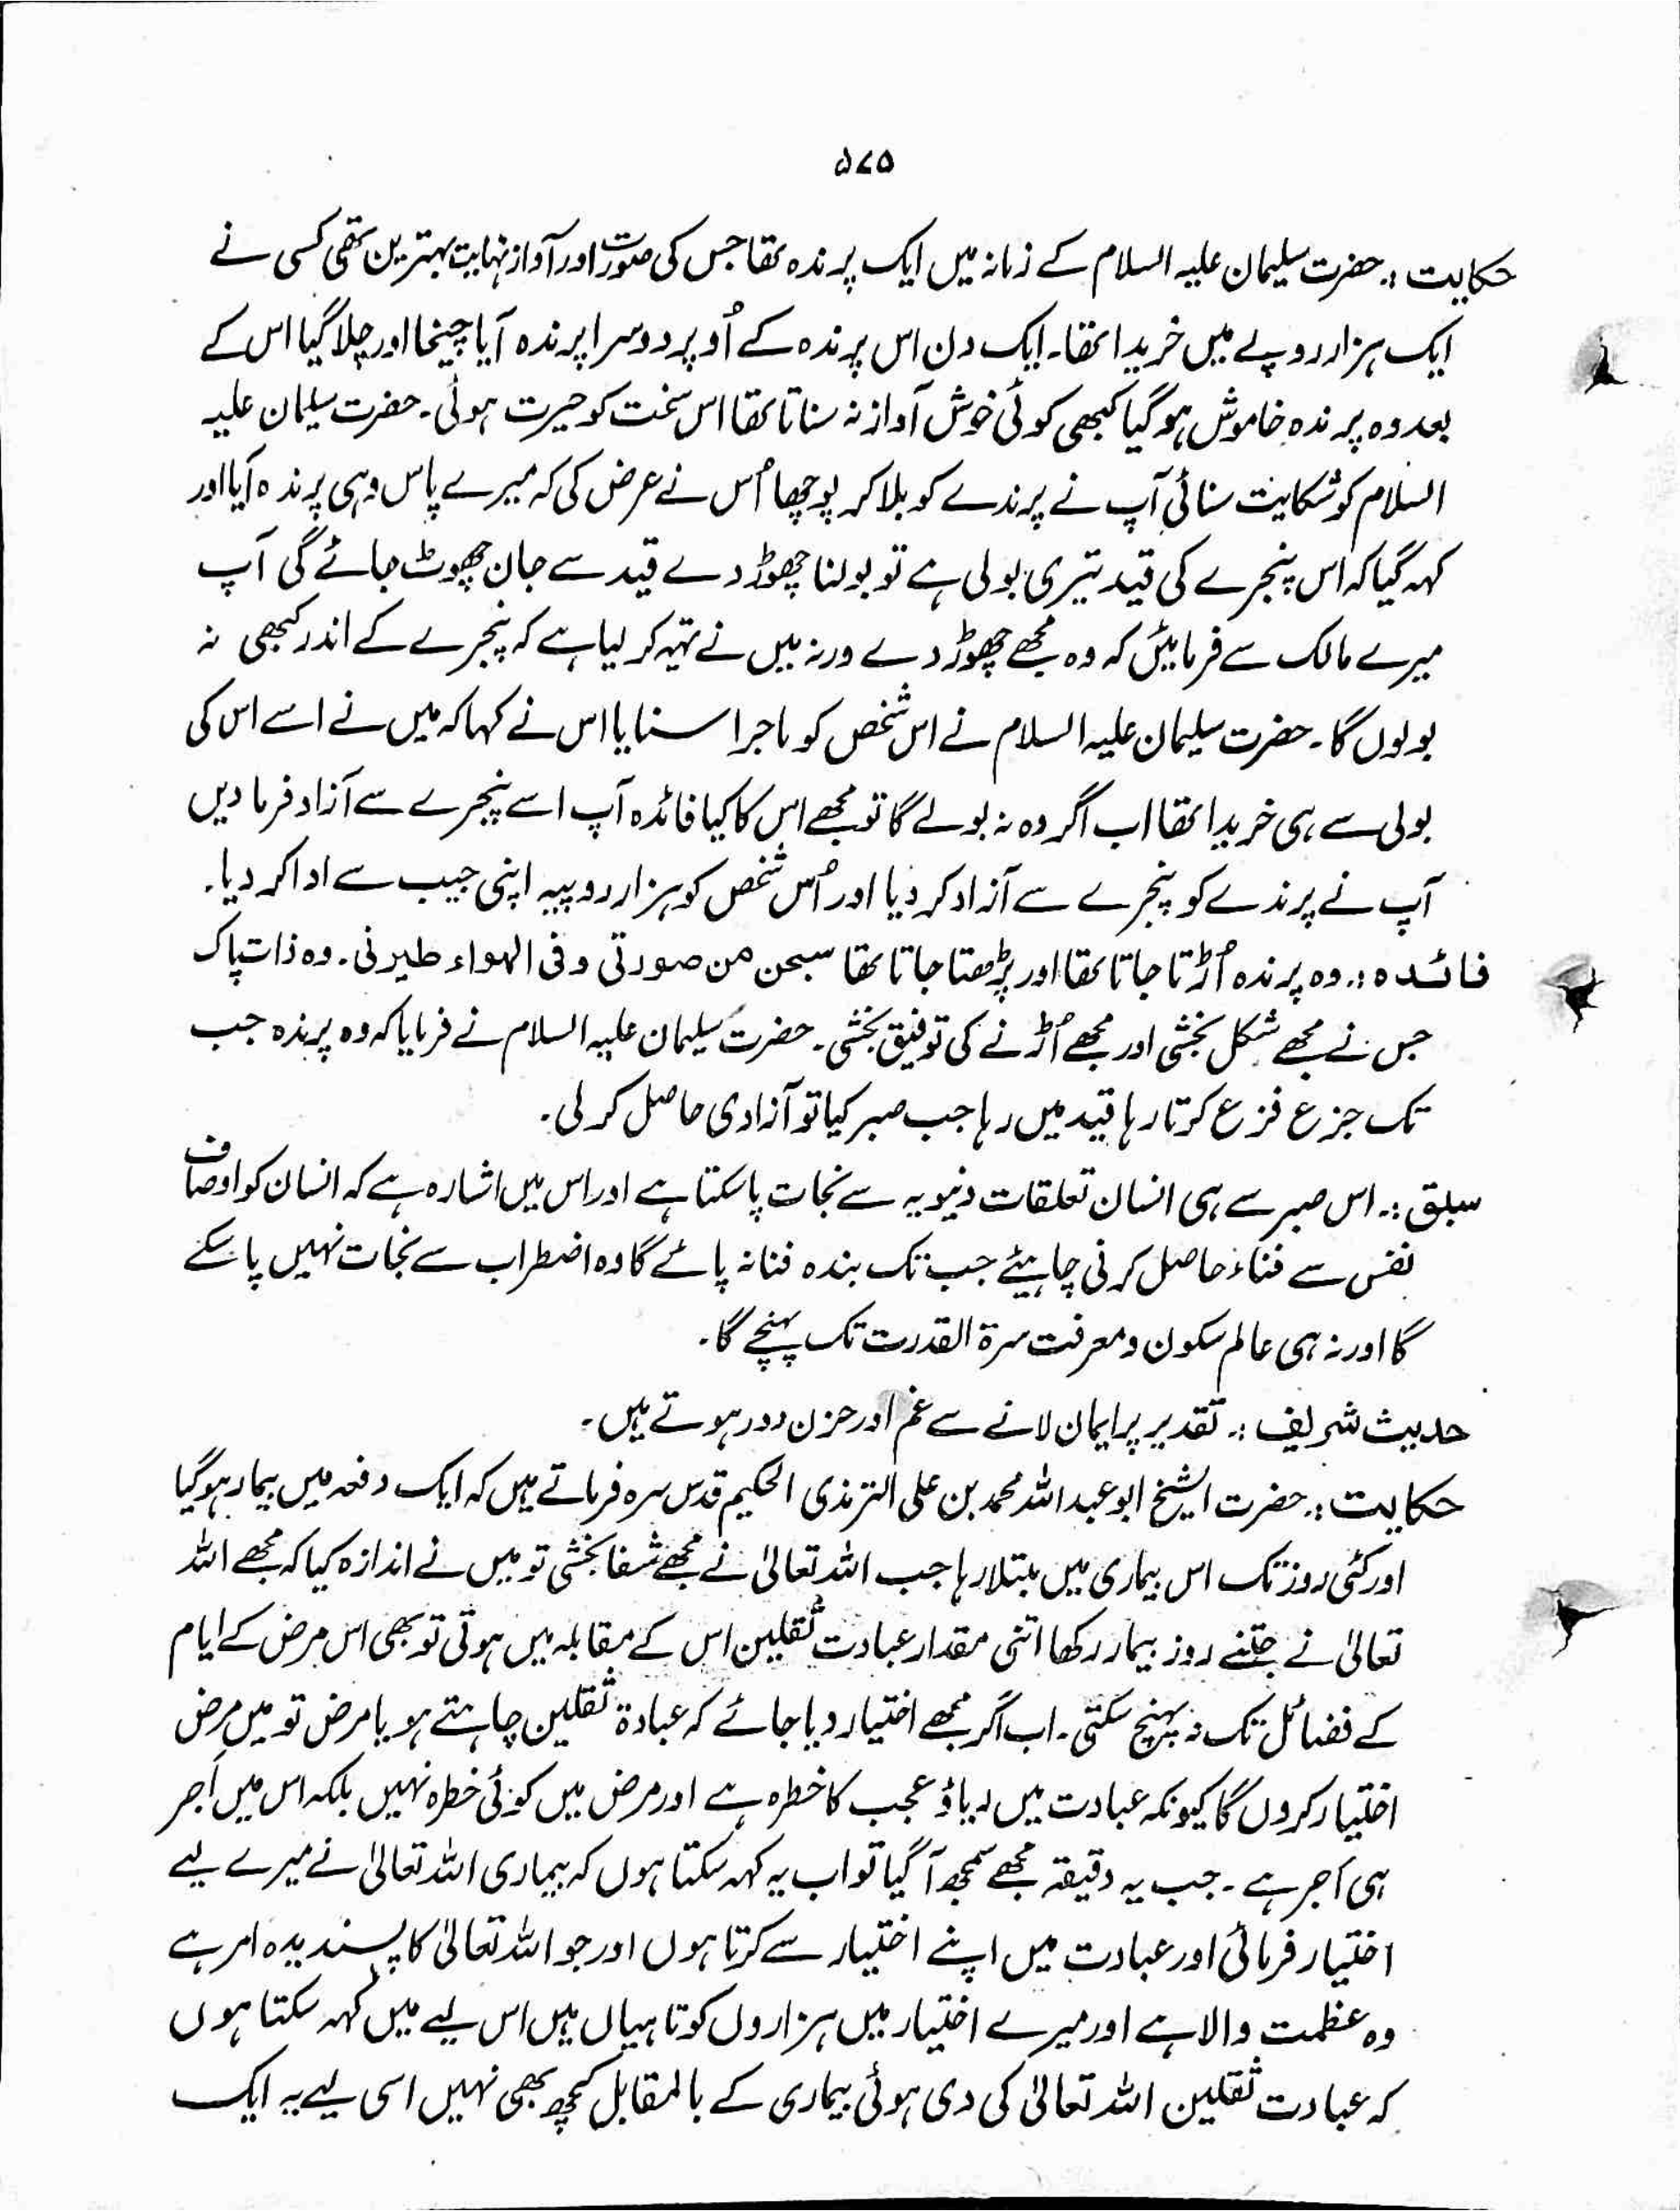 ۵۷۵
حکایت :۔ حضرت سلیمان علیہ السلام کے زمانہ میں ایک پرندہ تھا جس کی صورت اور آواز نہایت بہترین تھی کسی نے
ایک ہزار روپے میں خریدا تھا۔ ایک دن اس پرندہ کے اُوپر دوسرا پرندہ آیا چیخا اور چلا گیا اس کے
بعد وہ پرندہ خاموش ہو گیا کبھی کوئی خوش آواز نہ سناتا تھا اس سخت کو حیرت ہوئی۔ حضرت سلیمان علیہ
السلام کو شکایت سنائی آپ نے پرندے کو بلا کر پوچھا اُس نے عرض کی کہ میرے پاس وہی پرندہ آیا اور
کہہ گیا کہ اس پنجرے کی قید تیری بولی ہے تو بولنا چھوڑ دے قید سے جان چھوٹ جائے گی آپ
میرے مالک سے فرمائیں کہ وہ مجھے چھوڑ دے ورنہ میں نے تہیہ کر لیا ہے کہ پنجرے کے اندر کبھی نہ
بولوں گا۔ حضرت سلیمان علیہ السلام نے اس شخص کو ماجرا سنایا اس نے کہا کہ میں نے اسے اس کی
بولی سے ہی خریدا تھا اب اگر وہ نہ بولے گا تو مجھے اس کا کیا فائدہ آپ اسے پنجرے سے آزاد فرما دیں
آپ نے پرندے کو پنجرے سے آزاد کر دیا اور اُس شخص کو ہزار روپیہ اپنی جیب سے ادا کر دیا۔
فائدہ :۔ وہ پرندہ اُڑتا جاتا تھا اور پڑھتا جاتا تھا سبحن من صورتی وفی الھواء طیرنی۔ وہ ذات پاک
جس نے مجھے شکل بخشی اور مجھے اُڑنے کی توفیق بخشی۔ حضرت سلیمان علیہ السلام نے فرمایا کہ وہ پرندہ جب
تک جزع فزع کرتا رہا قید میں رہا جب صبر کیا تو آزادی حاصل کر لی۔
سبلق :۔ اس صبر سے ہی انسان تعلقات دنیویہ سے نجات پا سکتا ہے اور اس میں اشارہ ہے کہ انسان کو اوصاف
نفس سے فناء حاصل کرنی چاہیئے جب تک بندہ فنا نہ پائے گا وہ اضطراب سے نجات نہیں پا سکے
گا اور نہ ہی عالم سکون و معرفت سرۃ القدرت تک پہنچے گا۔
حدیث شریف :۔ تقدیر پر ایمان لانے سے غم اور حزن دور ہوتے ہیں۔
حکایت :۔ حضرت الشیخ ابو عبداللہ محمد بن علی الترمذی الحکیم قدس سرہ فرماتے ہیں کہ ایک دفعہ میں بیمار ہو گیا
اور کئی روز تک اس بیماری میں مبتلا رہا جب اللہ تعالیٰ نے مجھے شفا بخشی تو میں نے اندازہ کیا کہ مجھے اللہ
تعالیٰ نے جتنے روز بیمار رکھا اتنی مقدار عبادت ثقلین اس کے مقابلہ میں ہوتی تو بھی اس مرض کے ایام
کے فضائل تک نہ پہنچ سکتی۔ اب اگر مجھے اختیار دیا جائے کہ عبادۃ ثقلین چاہتے ہو یا مرض تو میں مرض
اختیار کروں گا کیونکہ عبادت میں ریاؤ عجب کا خطرہ ہے اور مرض میں کوئی خطرہ نہیں بلکہ اس میں اَجر
ہی اَجر ہے۔ جب یہ دقیقہ مجھے سمجھ آ گیا تو اب یہ کہہ سکتا ہوں کہ بیماری اللہ تعالیٰ نے میرے لیے
اختیار فرمائی اور عبادت میں اپنے اختیار سے کرتا ہوں اور جو اللہ تعالیٰ کا پسندیدہ امر ہے
وہ عظمت والا ہے اور میرے اختیار میں ہزاروں کوتاہیاں ہیں اس لیے میں کہہ سکتا ہوں
کہ عبادت ثقلین اللہ تعالیٰ کی دی ہوئی بیماری کے بالمقابل کچھ بھی نہیں اسی لیے یہ ایک